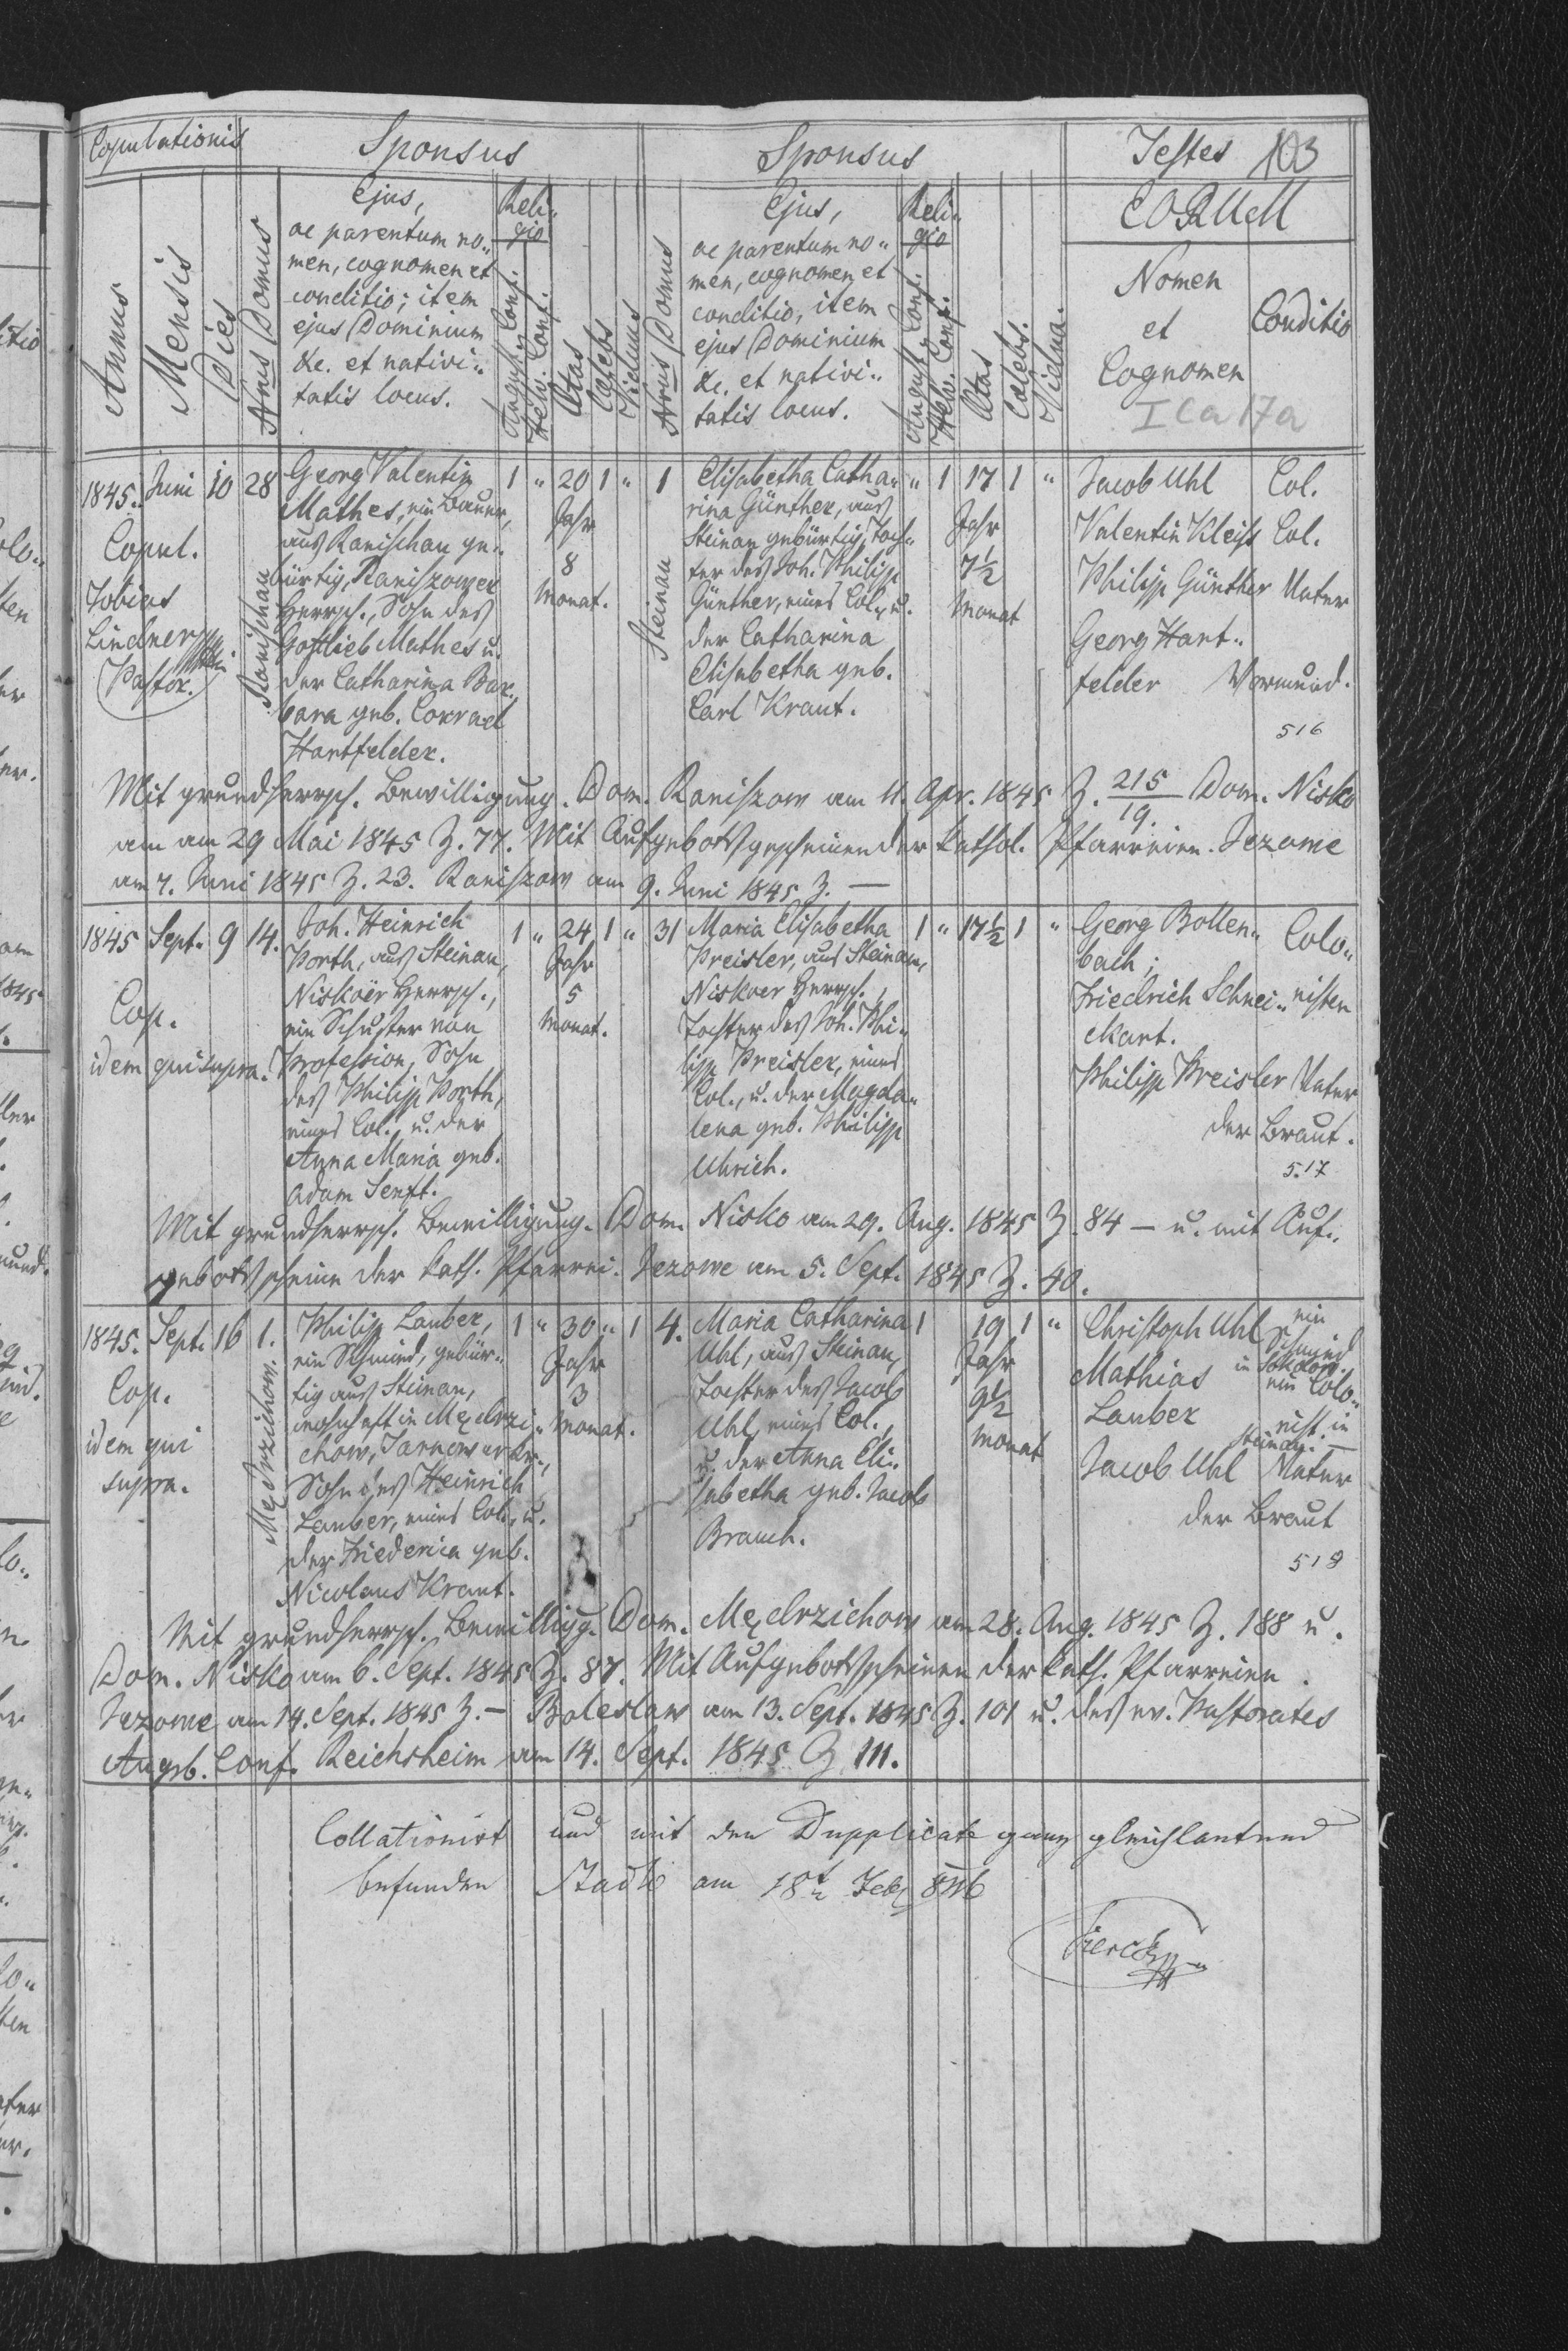 Copulationis Sponsus Sponsus Testes 103
EORUM
Annus Mensis Dies
Nrus Domus
Ejus,
ac parentum no„
men, cognomen et
conditio; item
ejus Dominium
&c. et nativi„
tatis locus.
Reli„
gio
August. Conf.
Helv. Conf.
Ætas
Cælebs
Viduus
Nrus Domus
Ejus,
ac parentum no„
men, cognomen et
conditio, item
ejus Dominium
&c. et nativi„
tatis locus.
Reli„
gio
August. Conf.
Helv. Conf.
Ætas
Cælebs.
Vidua.
Nomen
et
Cognomen
Conditio
I Ca 17a
1845. Juni 10 28
Copul.
Tobias
Lindner
Pastor.
Ranischau
Georg Valentin
Mathes, ein Bauer,
aus Ranischau ge„
bürtig, Raniszower
Herrsch., Sohn des
Gottlieb Mathes u.
der Catharina Bar„
bara geb. Conrad
Hartfelder.
1 „ 20 1 „
Jahr
8
Monat.
1
Steinau
Elisabetha Catha„
rina Günther, aus
Steinau gebürtig, Toch„
ter des Joh. Philipp
Günther, eines Col., u.
der Catharina
Elisabetha geb.
Carl Kraut.
„ 1 17 1 „
Jahr
7½
Monat
Jacob Uhl Col.
Valentin Kleiss Col.
Philipp Günther Vater
Georg Hart„
felder Vormund.
516
Mit grundherrsch. Bewilligung. Dom. Raniszow am 11. Apr. 1845 Z. 215/19. Dom. Nisko
am am 29 Mai 1845 Z. 77. Mit Aufgebotsscheinen der kathol. Pfarreien. Jezowe
am 7. Juni 1845 Z. 23. Raniszow am 9. Juni 1845 Z. —
1845 Sept. 9 14.
Cop.
idem qui supra.
Joh. Heinrich
Porth, aus Steinau,
Niskoër Herrsch.,
ein Schuster von
Profession, Sohn
des Philipp Porth,
eines Col., u. der
Anna Maria geb.
Adam Senft.
1 „ 24 1 „
Jahr
5
Monat.
31
Maria Elisabetha
Preisler, aus Steinau,
Niskoer Herrsch.,
Tochter des Joh. Phi„
lipp Preisler, eines
Col., u. der Magda„
lena geb. Philipp
Uhrich.
1 „ 17½ 1 „
Georg Bollen„ Colo„
bach;
Friedrich Schnei„ nisten
ckart.
Philipp Preisler Vater
der Braut.
517
Mit grundherrsch. Bewilligung. Dom. Nisko am 29. Aug. 1845 Z. 84 — u. mit Auf„
gebotsscheine der kath. Pfarrei. Jezowe am 5. Sept. 1845 Z. 40.
1845. Sept. 16 1.
Cop.
idem qui
supra.
Mędrzichow.
Philip Lauber,
ein Schmied, gebür„
tig aus Steinau,
wohnhaft in Mędrzi„
chow, Tarnower Kr.,
Sohn des Heinrich
Lauber, eines Col., u.
der Friederica geb.
Nicolaus Kraut.
1 „ 30 „ 1
Jahr
3
Monat.
4.
Maria Catharina
Uhl, aus Steinau,
Tochter des Jacob
Uhl, eines Col.,
u. der Anna Eli„
sabetha geb. Jacob
Brauch.
1 19 1 „
Jahr
9½
Monat
Christoph Uhl ein
Schmied
in Sokolow.
Mathias ein Colo„
Lauber nist in
Steinau. —
Jacob Uhl Vater
der Braut
518
Mit grundherrsch. Bewilligg. Dom. Mędrzichow am 28. Aug. 1845 Z. 188 u.
Dom. Nisko am 6. Sept. 1845 Z. 87. Mit Aufgebotsscheinen der kath. Pfarreien.
Jezowe am 14. Sept. 1845 Z. — Boleslaw am 13. Sept. 1845 Z. 101 u. des ev. Pastorates
Augsb. Conf. Reichsheim am 14. Sept. 1845 Z 111.
Collationirt und mit dem Dupplicate ganz gleichlautend
befunden Stadlo am 18t Feb 846